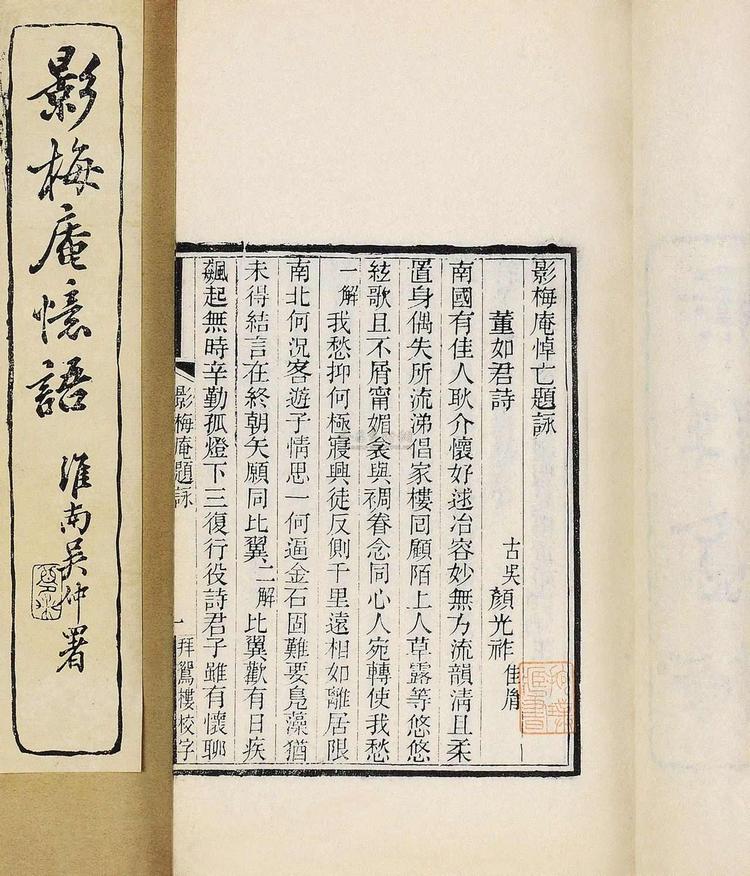 影梅庵憶語
淮南吴仲署
影梅庵悼亡題詠
董如君詩
古吳顏光祚佳胤
南國有佳人耿介懷好逑冶容妙無方流韻淸且柔
置身偶失所流涕倡家樓囘顧陌上人草露等悠悠
絃歌且不屑甯媚衾與裯眷念同心人宛轉使我愁
一解我愁抑何極寢興徒反側千里遠相如離居限
南北何況客遊子情思一何逼金石固難要鳧藻猶
未得結言在終朝矢願同比翼二解比翼歡有日疾
飆起無時辛勤孤燈下三復行役詩君子雖有懷聊
影梅庵題詠
一
拜鴛樓校字